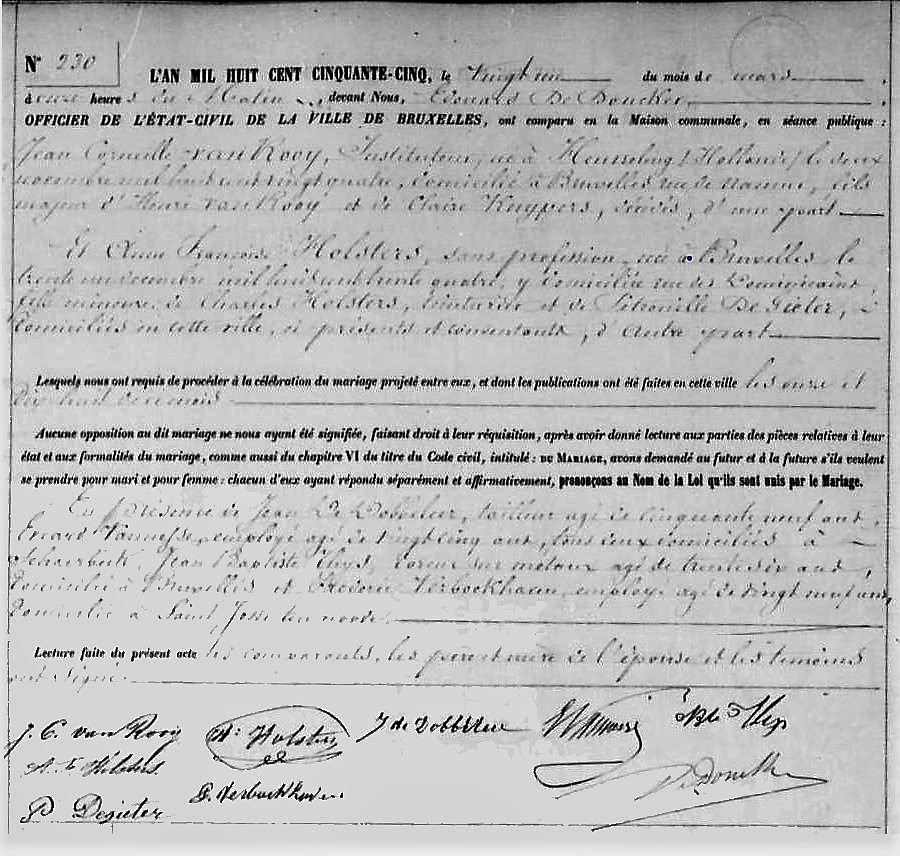 N° 230
L'AN MIL HUIT CENT CINQUANTE-CINQ, le vingt un du mois de mars
à onze heures du Matin, devant Nous, Edouard De Doncker,
OFFICIER DE L'ÉTAT-CIVIL DE LA VILLE DE BRUXELLES, ont comparu en la Maison communale, en séance publique :
Jean Corneille van Rooy, Instituteur, né à (Hollande) le deux
novembre mil huit cent vingt quatre, domicilié à Bruxelles rue de Namur, fils
majeur d'Henri van Rooy et de Claire Kuypers, décédés, d'une part
Et Anne Françoise Holsters, sans profession, née à Bruxelles le
trente un décembre mil huit cent trente quatre, y domiciliée rue des
fille mineure de Charles Holsters, et de Pétronille De Gieter,
domiciliés en cette ville, ici présents et consentants, d'autre part
Lesquels nous ont requis de procéder à la célébration du mariage projeté entre eux, et dont les publications ont été faites en cette ville les onze et
dix huit de ce mois
Aucune opposition au dit mariage ne nous ayant été signifiée, faisant droit à leur réquisition, après avoir donné lecture aux parties des pièces relatives à leur
état et aux formalités du mariage, comme aussi du chapitre VI du titre du Code civil, intitulé : DU MARIAGE, avons demandé au futur et à la future s'ils veulent
se prendre pour mari et pour femme : chacun d'eux ayant répondu séparément et affirmativement, prononçons au Nom de la Loi qu'ils sont unis par le Mariage.
En présence de Jean De Dobbeleer, tailleur agé de cinquante neuf ans,
employé agé de vingt cinq ans, tous deux domiciliés à
Schaerbeek, Jean Baptiste Thys, doreur sur métaux agé de trente six ans,
domicilié à Bruxelles et Fréderic Verboekhaven, employé agé de vingt neuf ans,
domicilié à Saint Josse ten noode.
Lecture faite du présent acte les comparants, les père et mère de l'épouse et les témoins
ont signé.
J. C. van Rooy Holsters J de Dobbeleer Thys
Holsters
Verboekhaven De Doncker
P Degieter